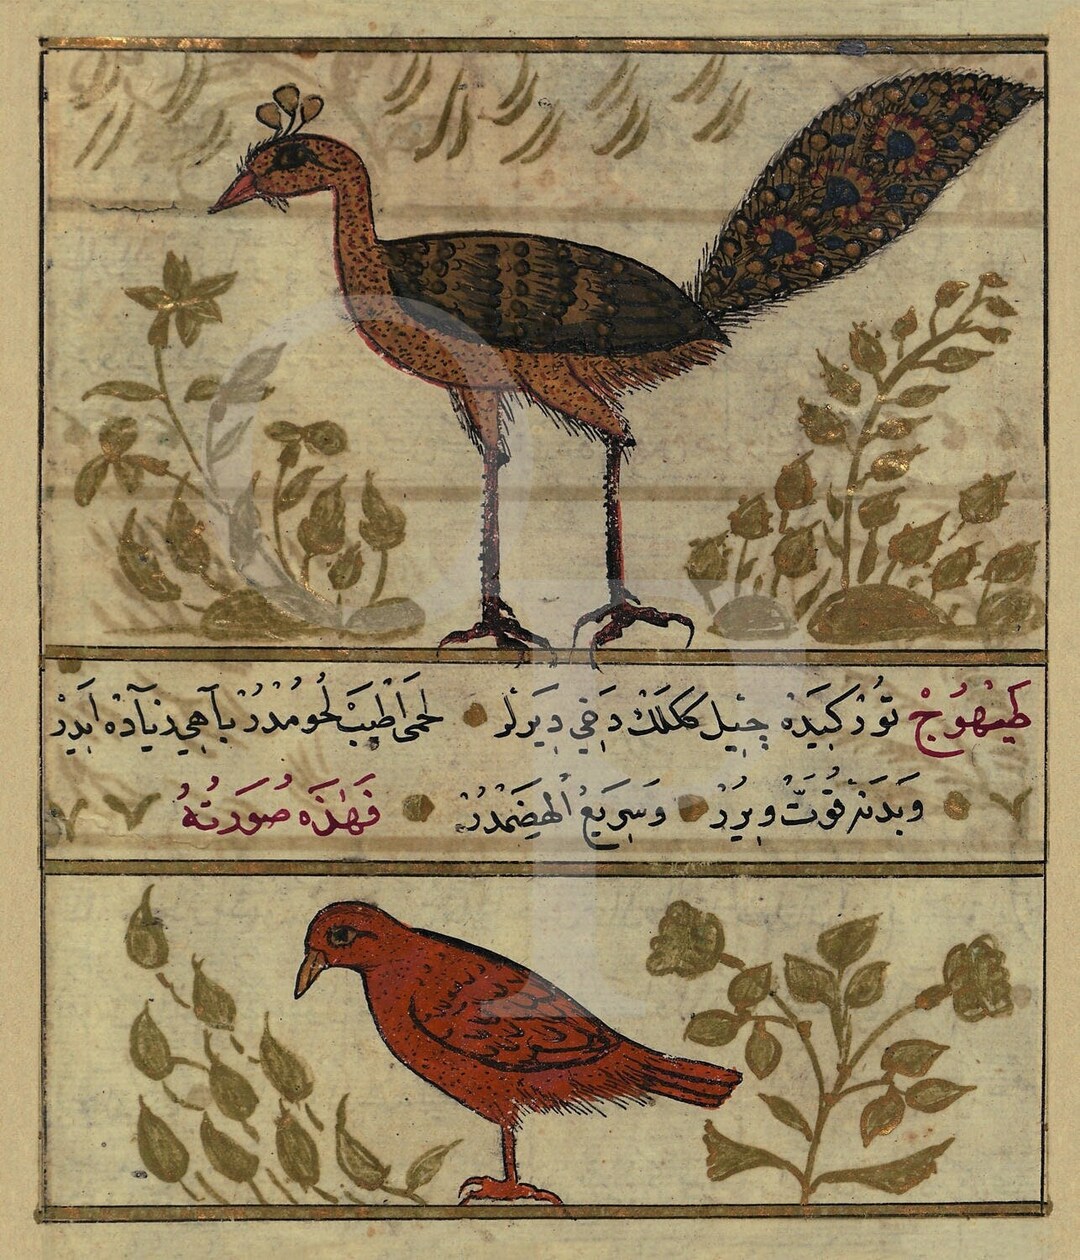 طَيْهُوجْ تُوزْكبَيدَه جِيل كَكلَك دَخِي دِيَرلَر لحمى اَطْيَبْ لُحُومُدُرْ بآهِي زِيَادَه اَيدَرْ
وَبَدَنَه قُوَّتْ وِيرُرْ وَسَرِيعُ الْهَضَمْدُرْ فَهٰذَه صُورَتُهُ